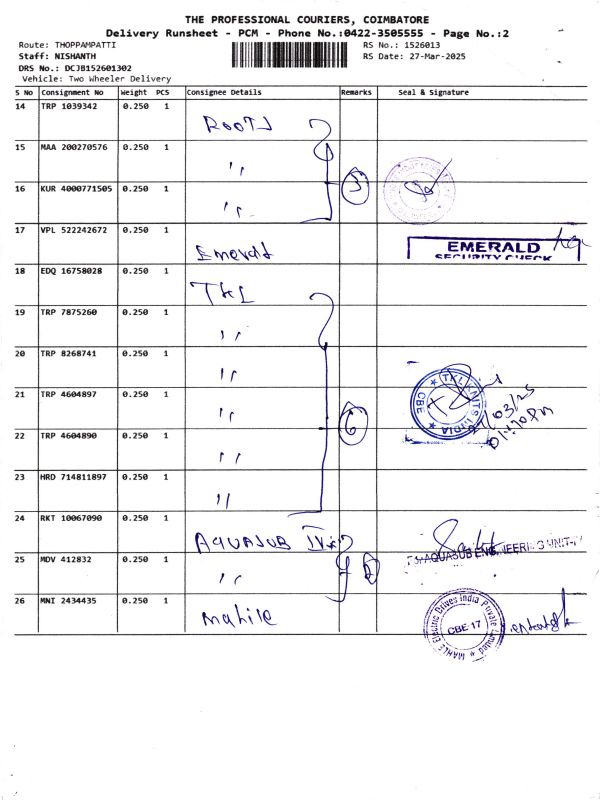 THE PROFESSIONAL COURIERS, COIMBATORE
Delivery Runsheet - PCM - Phone No.:0422-3505555 - Page No.:2
Route: THOPPAMPATTI RS No.: 1526013
Staff: NISHANTH RS Date: 27-Mar-2025
DRS No.: DCJB152601302
Vehicle: Two Wheeler Delivery
S No Consignment No Weight PCS Consignee Details Remarks Seal & Signature
14 TRP 1039342 0.250 1 ROOTS
15 MAA 200270576 0.250 1 ''
16 KUR 4000771505 0.250 1 '' 3
17 VPL 522242672 0.250 1 Emerald EMERALD
SECURITY CHECK
18 EDQ 16758028 0.250 1 TKL
19 TRP 7875260 0.250 1 ''
20 TRP 8268741 0.250 1 ''
21 TRP 4604897 0.250 1 '' 6 TKL KNITS INDIA CBE
22 TRP 4604890 0.250 1 ''
23 HRD 714811897 0.250 1 ''
24 RKT 10067090 0.250 1 AQUASUB
25 MDV 412832 0.250 1 '' 2 AQUASUB ENGINEERING UNIT-IV
26 MNI 2434435 0.250 1 Mahle MAHLE Electric Drives India Private Limited CBE-17